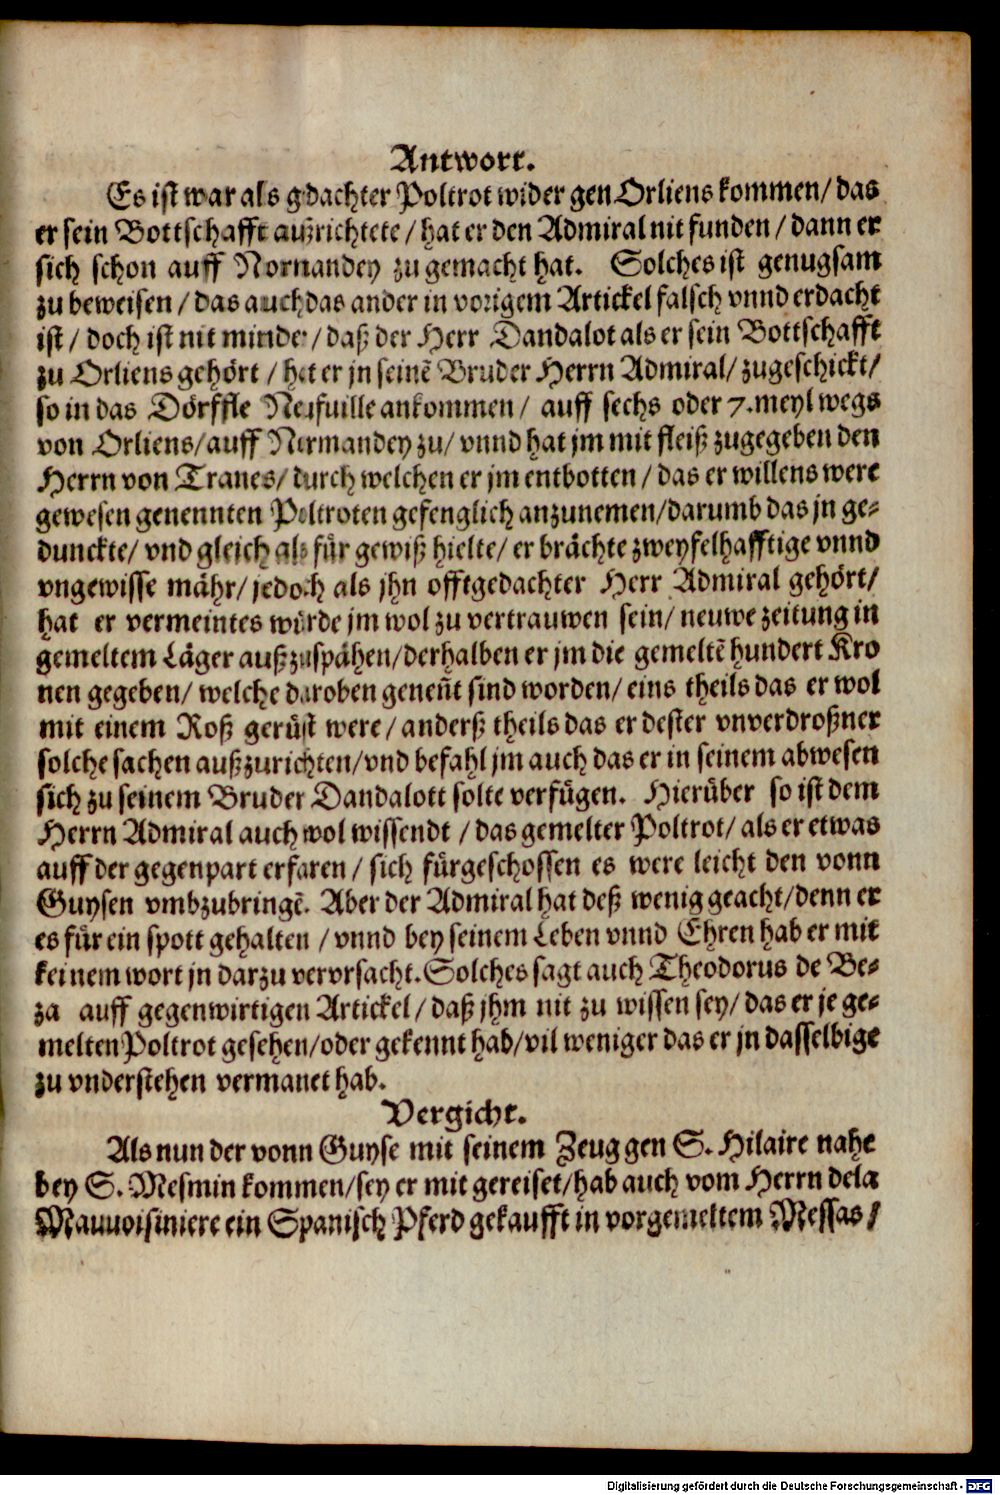 Antwort.
Es ist war als gdachter Poltrot wider gen Orliens kommen/ das
er sein Bottschafft außrichtete/ hat er den Admiral nit funden/ dann er
sich schon auff Normandey zu gemacht hat. Solches ist genugsam
zu beweisen/ das auch das ander in vorigem Artickel falsch vnnd erdacht
ist/ doch ist nit minder/ daß der Herr Dandalot als er sein Bottschafft
zu Orliens gehört/ hat er jn seinē Bruder Herrn Admiral/ zugeschickt/
so in das Dörffle Neufuille ankommen/ auff sechs oder 7. meyl wegs
von Orliens/ auff Normandey zu/ vnnd hat jm mit fleiß zugegeben den
Herrn von Tranes/ durch welchen er jm entbotten/ das er willens were
gewesen genennten Poltroten gefenglich anzunemen/ darumb das jn ge-
dunckte/ vnd gleich als für gewiß hielte/ er brächte zweyfelhafftige vnnd
vngewisse mähr/ jedoch als jhn offtgedachter Herr Admiral gehört/
hat er vermeint es würde jm wol zu vertrauwen sein/ neuwe zeitung in
gemeltem Läger außzuspähen/ derhalben er jm die gemeltē hundert Kro
nen gegeben/ welche daroben geneñt sind worden/ eins theils das er wol
mit einem Roß gerüst were/ anderß theils das er dester vnverdroßner
solche sachen außzurichten/ vnd befahl jm auch das er in seinem abwesen
sich zu seinem Bruder Dandalott solte verfügen. Hierüber so ist dem
Herrn Admiral auch wol wissendt/ das gemelter Poltrot/ als er etwas
auff der gegenpart erfaren/ sich fürgeschossen es were leicht den vonn
Guysen vmbzubringē. Aber der Admiral hat deß wenig geacht/ denn er
es für ein spott gehalten/ vnnd bey seinem Leben vnnd Ehren hab er mit
keinem wort jn darzu vervrsacht. Solches sagt auch Theodorus de Be-
za auff gegenwirtigen Artickel/ daß jhm nit zu wissen sey/ das er je ge-
melten Poltrot gesehen/ oder gekennt hab/ vil weniger das er jn dasselbige
zu vnderstehen vermanet hab.
Vergicht.
Als nun der vonn Guyse mit seinem Zeug gen S. Hilaire nahe
bey S. Mesmin kommen/ sey er mit gereiset/ hab auch vom Herrn dela
Mauuoisiniere ein Spanisch Pferd gekaufft in vorgemeltem Messas/
Digitalisierung gefördert durch die Deutsche Forschungsgemeinschaft - DFG